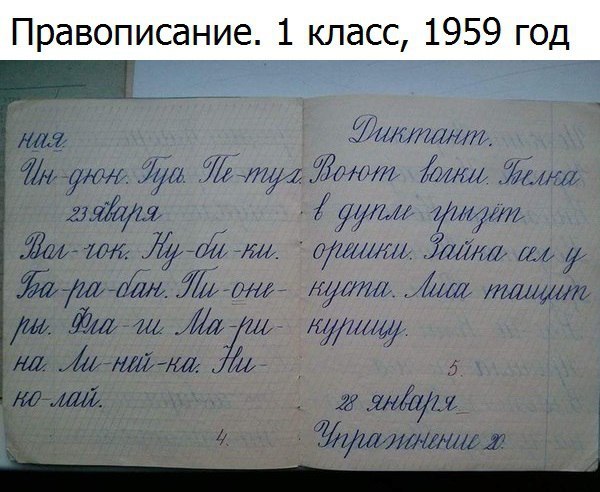 Правописание. 1 класс, 1959 год
ная.
Ин-дюк. Гуа. Пе-тух.
23 января
Вол-чок. Ку-би-ки.
Ба-ра-бан. Пи-оне-
ры. Фла-ги. Ма-ри-
на. Ли-ней-ка. Ни-
ко-лай.
4.
Диктант.
Воют волки. Белка
в дупле грызёт
орешки. Зайка сел у
куста. Лиса тащит
курицу.
5.
28 января
Упражнение 20.